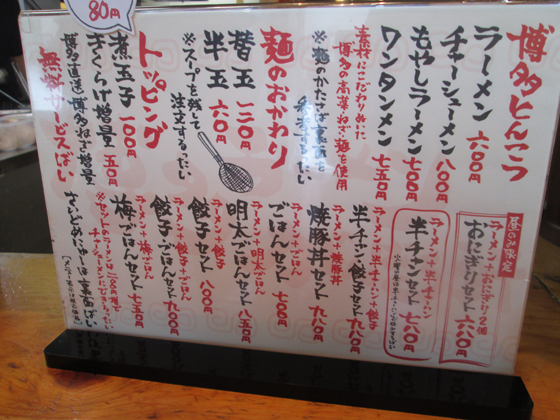 博多とんこつ
ラーメン 六〇〇円
チャーシューメン 八〇〇円
もやしラーメン 七〇〇円
ワンタンメン 七五〇円
素材にこだわりぬいた
博多の高菜、ねぎ、麺を使用
麺のおかわり
替玉 一二〇円
半玉 六〇円
※スープを残して
注文するったい
トッピング
煮玉子 一〇〇円
きくらげ増量 五〇円
博多直送)博多ねぎ増量
無料サービスばい
80円
昼のみ限定
おにぎりセット
ラーメン+半チャーハン
半チャンセット 七八〇円
ラーメン+半チャン+餃子
半チャン餃子セット
ラーメン+焼豚丼
焼豚丼セット
ラーメン+ごはん
ごはんセット 七〇〇円
ラーメン+明太ごはん
明太ごはんセット 八五〇円
ラーメン+餃子
餃子セット 八〇〇円
ラーメン+餃子+ごはん
餃子ごはんセット 九〇〇円
ラーメン+梅ごはん
梅ごはんセット 七五〇円
※セットのラーメンは二〇〇円増で
チャーシューメンに